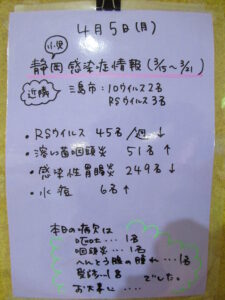 4月5日(月)
小児
静岡 感染症情報(3/15～3/21)
近隣
三島市:ロタウイルス2名
RSウイルス3名
・RSウイルス 45名/週 ↓
・溶レン菌咽頭炎 51名 ↑
・感染性胃腸炎 249名 ↓
・水痘 6名 ↑
本日の病欠は
嘔吐…1名
咽頭炎…1名
へんとう腺の腫れ…1名
発熱…1名 でした。
お大事に....